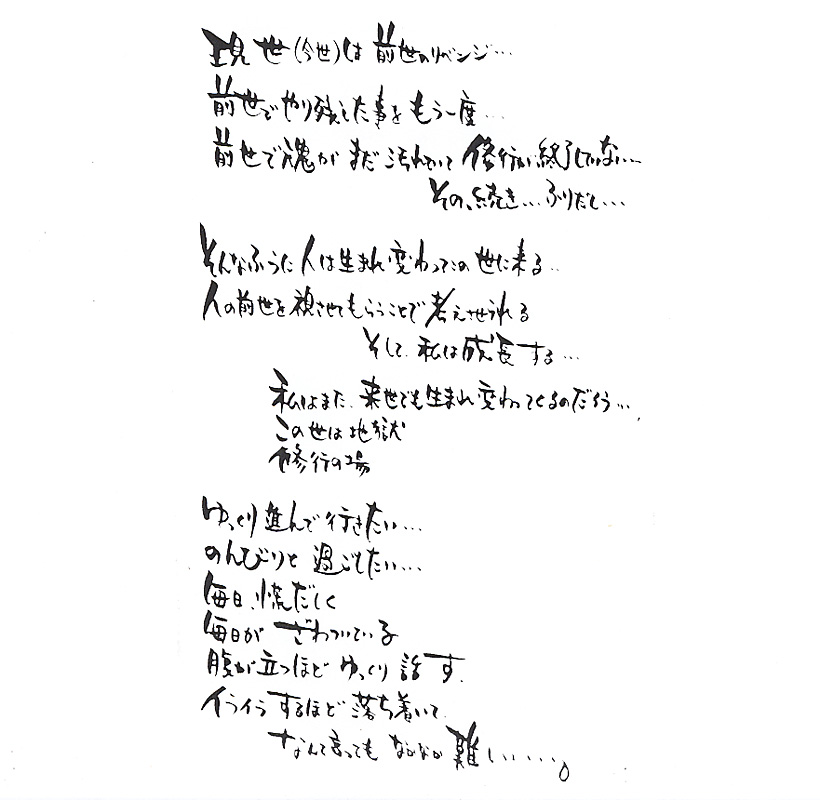 現世(今世)は前世のリベンジ…
前世でやり残した事をもう一度…
前世で魂がまだ汚れていて修行が終了していない…
その、続き…ふりだし…
そんなふうに人は生まれ変わってこの世に来る…
人の前世を視させてもらうことで考えさせられる
そして、私は成長する…
私はまた、来世でも生まれ変わってくるのだろう…
この世は地獄
修行の場
ゆっくり進んで行きたい…
のんびりと過ごしたい…
毎日、慌だしく
毎日がざわついている
腹が立つほどゆっくり話す.
イライラするほど落ち着いて.
なんて言ってもなかなか難しい……。